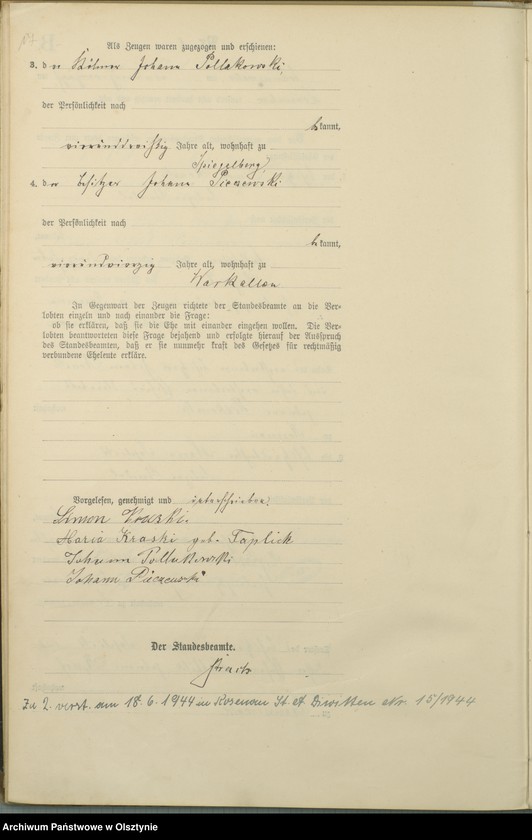 Als Zeugen waren zugezogen und erschienen:
3. der Kölmer Johann Pollakowski,
der Persönlichkeit nach
bekannt,
vierunddreißig Jahre alt, wohnhaft zu
Spiegelberg,
4. der Besitzer Johann Piczewski
der Persönlichkeit nach
bekannt,
vierundvierzig Jahre alt, wohnhaft zu
Warkallen
In Gegenwart der Zeugen richtete der Standesbeamte an die Ver-
lobten einzeln und nach einander die Frage:
ob sie erklären, daß sie die Ehe mit einander eingehen wollen. Die Ver-
lobten beantworteten diese Frage bejahend und erfolgte hierauf der Ausspruch
des Standesbeamten, daß er sie nunmehr kraft des Gesetzes für rechtmäßig
verbundene Eheleute erkläre.
Vorgelesen, genehmigt und unterschrieben:
Simon
Maria Kraski geb. Taplick
Johann Pollakowski
Johann
Der Standesbeamte.
Zu 2. verst. am 18.6.1944 in Rosenau St. A. Diwitten Nr. 15/1944
Archiwum Państwowe w Olsztynie